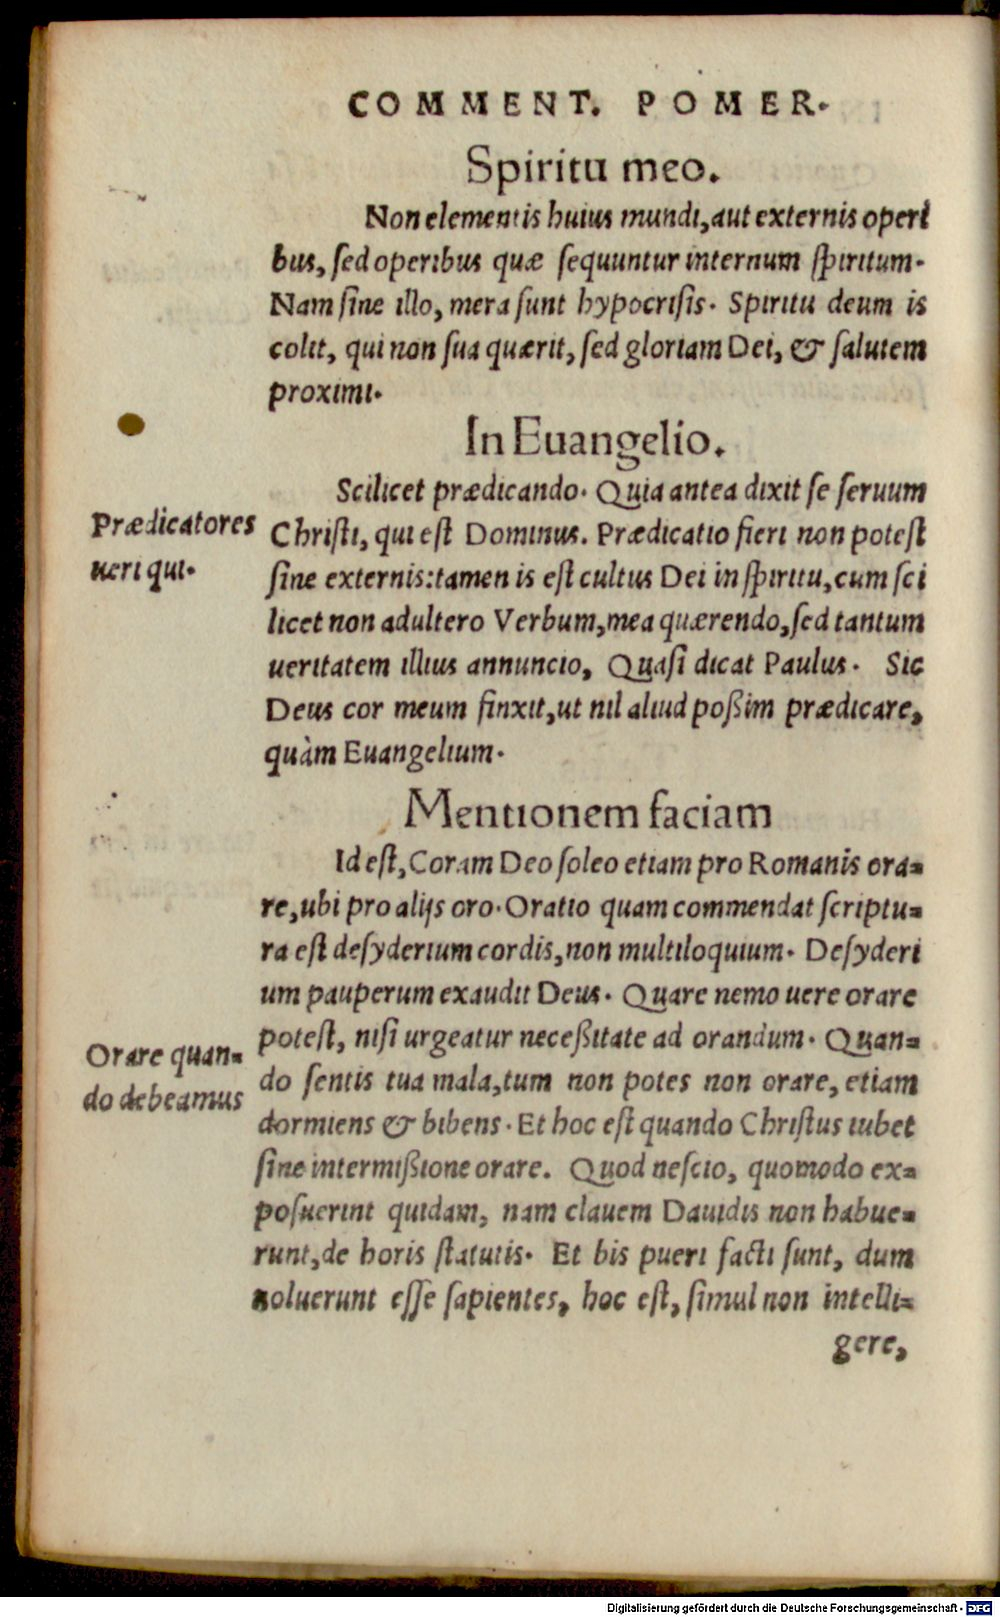 COMMENT. POMER.
Spiritu meo.
Non elementis huius mundi, aut externis operi
bus, sed operibus quæ sequuntur internum spiritum.
Nam sine illo, mera sunt hypocrisis. Spiritu deum is
colit, qui non sua quærit, sed gloriam Dei, & salutem
proximi.
In Euangelio.
Scilicet prædicando. Quia antea dixit se seruum
Christi, qui est Dominus. Prædicatio fieri non potest
sine externis: tamen is est cultus Dei in spiritu, cum sci
licet non adultero Verbum, mea quærendo, sed tantum
ueritatem illius annuncio, Quasi dicat Paulus. Sic
Deus cor meum finxit, ut nil aliud poßim prædicare,
quàm Euangelium.
Prædicatores
ueri qui.
Mentionem faciam
Id est, Coram Deo soleo etiam pro Romanis ora=
re, ubi pro alijs oro. Oratio quam commendat scriptu=
ra est desyderium cordis, non multiloquium. Desyderi
um pauperum exaudit Deus. Quare nemo uere orare
potest, nisi urgeatur neceßitate ad orandum. Quan=
do sentis tua mala, tum non potes non orare, etiam
dormiens & bibens. Et hoc est quando Christus iubet
sine intermißione orare. Quod nescio, quomodo ex=
posuerint quidam, nam clauem Dauidis non habue=
runt, de horis statutis. Et bis pueri facti sunt, dum
noluerunt esse sapientes, hoc est, simul non intelli=
gere,
Orare quan=
do debeamus
Digitalisierung gefördert durch die Deutsche Forschungsgemeinschaft - DFG